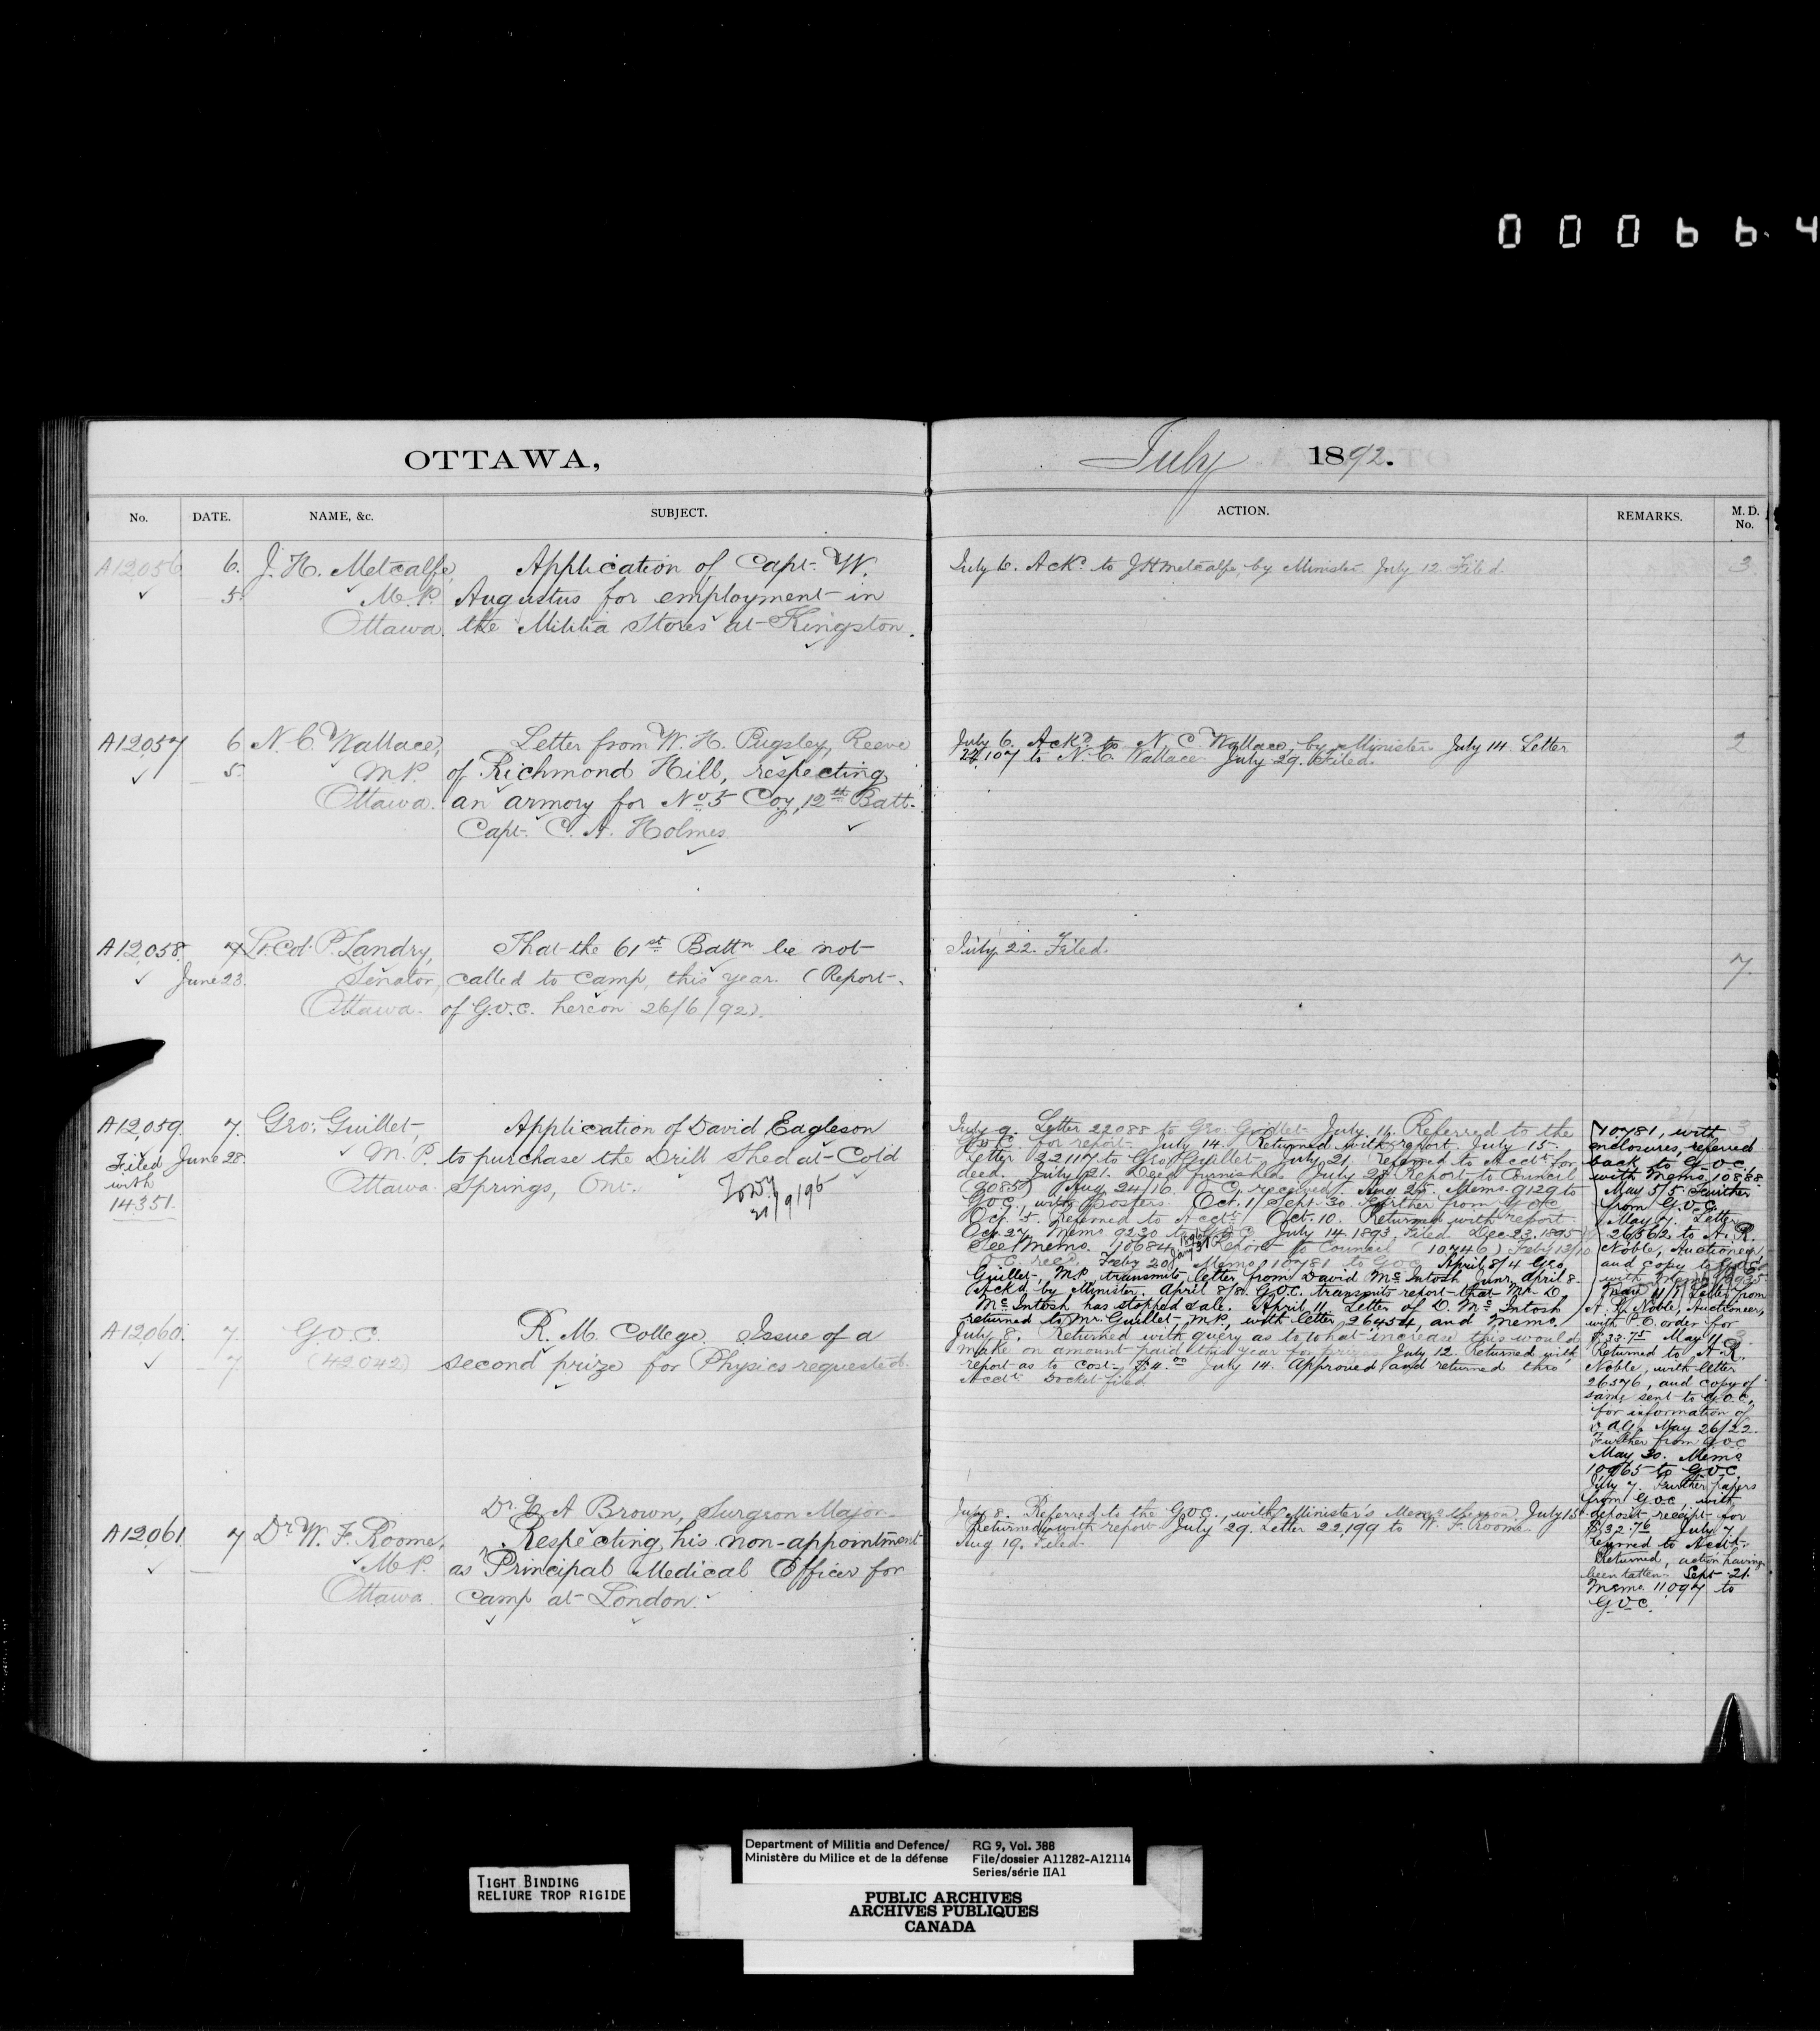 000664
OTTAWA,
July 1892.
No.
DATE.
NAME, &c.
SUBJECT.
ACTION.
REMARKS.
M. D. No.
A12,056 6. J. H. Metcalfe, Application of Capt. W.
5. M.P. Augustus for employment in
Ottawa. the Militia Stores at Kingston.
July 6. Ackd. to J H Metcalfe, by Minister July 12. Filed.
3.
A12,057 6 N. C. Wallace, Letter from W. H. Pugsley, Reeve
5. M.P. of Richmond Hill, respecting
Ottawa. an armory for No. 5 Coy, 12th Batt.
Capt. C. A. Holmes.
July 6. Ackd. to N. C. Wallace, by Minister. July 14. Letter
22,107 to N. C. Wallace. July 29. Filed.
2
A12,058. 7 Lt. Col. P. Landry, That the 61st Battn be not
June 23. Senator, called to camp, this year. (Report
Ottawa. of G.O.C. hereon 26/6/92).
July 22. Filed.
7.
A12,059. 7. Geo. Guillet, Application of David Eagleson
Filed June 28. M.P. to purchase the Drill Shed at Cold
with Ottawa. Springs, Ont.
14351.
21/9/95
July 9. Letter 22088 to Geo. Guillet. July 11. Referred to the
G.O.C. for report. July 14. Returned with report. July 15.
Letter 22117 to Geo. Guillet. July 21. Referred to Acctt. for
deed. July 21. Deed furnished. July 28 Report to Council
(9085) Aug 24/16. O.C. received. Aug 25. Memo. 9129 to
G.O.C., with posters. Oct. 1/Sept. 30. Further from G.O.C.
Oct. 5. Referred to Acctt. Oct. 10. Returned with report.
Oct. 27. Memo 9230 to G.O.C. July 14 1893. Filed. Dec 23. 1895
See memo. 10684. Report to Council (10746) Feby 13/10
O.C. recd. Feby 20. Memo 10781 to G.O.C. April 8/4 Geo.
Guillet, M.P. transmits letter from David McIntosh Junr. April 8.
Ackd. by Minister. April 8/8. G.O.C. transmits report that Mr. D.
McIntosh has stopped sale. April 11. Letter of D. McIntosh
returned to Mr. Guillet, M.P., with letter 26454, and memo.
10781, with
enclosures, referred
back to G.O.C.
with Memo 10888.
May 5/5 Further
from G.O.C.
May 7. Letter
26562 to A. R.
Noble, Auctioneer,
and copy to G.O.C.
May 11/11 Letter from
A. R. Noble, Auctioneer,
with P.O. order for
$33.75 May 11
Returned to A. R.
Noble, with letter
26576, and copy of
same sent to G.O.C.
for information of
D.A.G. May 26/22.
Further from G.O.C
May 30. Memo
10965 to G.O.C.
July 7. Further papers
from G.O.C. with
deposit receipt for
$32.76 July 7
referred to Acctt.
Returned, action having
been taken. Sept 21.
Memo 11097 to
G.O.C.
3
A12,060. 7. G.O.C. R. M. College. Issue of a
7 (42042) second prize for Physics requested.
July 8. Returned with query as to what increase this would
make on amount paid this year for prizes. July 12. Returned with
report as to cost $4.00 July 14. Approved and returned thro'
Acctt. Docket filed.
3.
Dr. A Brown, Surgeon Major
A12,061 7 Dr. W. F. Roome, Respecting his non-appointment
M.P. as Principal Medical Officer for
Ottawa. Camp at London.
July 8. Referred to the G.O.C., with Minister's Memo thereon. July 15.
Returned with report July 29. Letter 22,199 to W. F. Roome.
Aug 19. Filed.
TIGHT BINDING
RELIURE TROP RIGIDE
Department of Militia and Defence/
Ministère du Milice et de la défense
RG 9, Vol. 388
File/dossier A11282-A12114
Series/série IIA1
PUBLIC ARCHIVES
ARCHIVES PUBLIQUES
CANADA